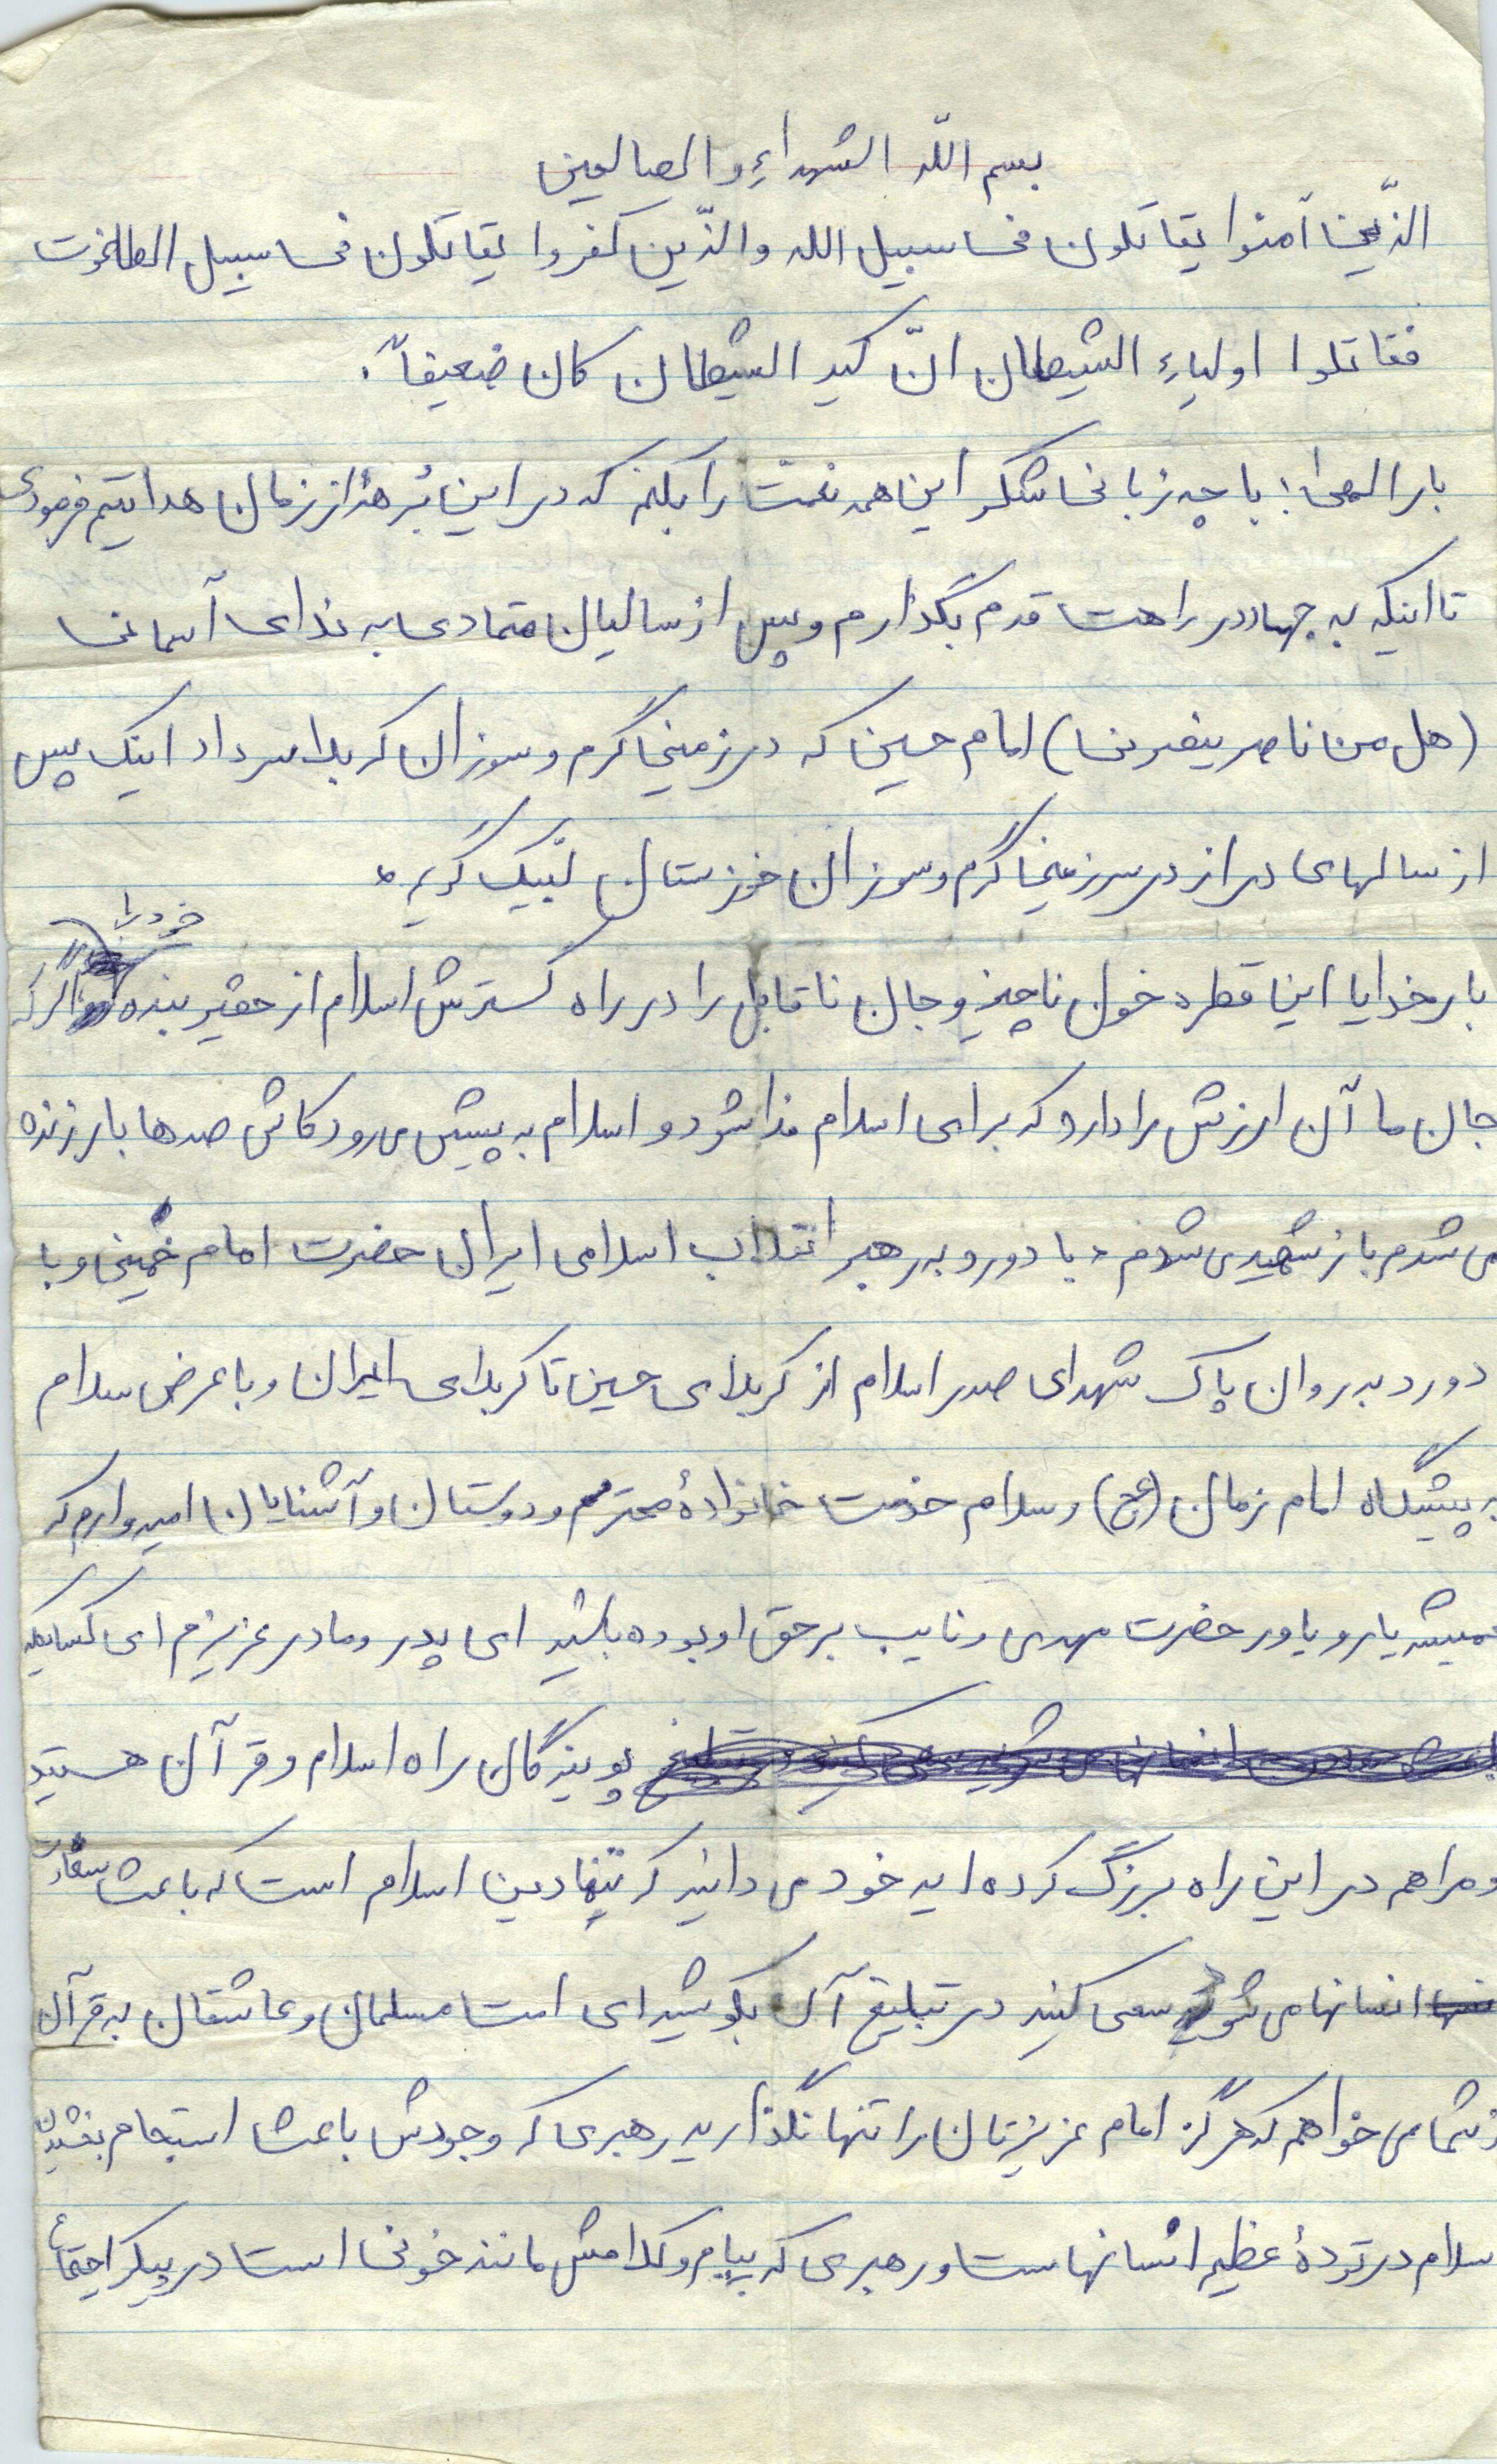 بسم اللّه الشهداءِ والصالحین
الذّین آمنوا یقاتلون فی سبیل الله والذّین کفروا یقاتلون فی سبیل الطاغوت
فقاتلوا اولیاءِ الشیطان انّ کید الشیطان کان ضعیفاً.
بارالهی! با چه زبانی شکر این همه نعمت را بکنم که در این بُرههٔ از زمان هدایتیم فرمودی
تا اینکه به جهاد در راهت قدم بگذارم و پس از سالیان متمادی به ندای آسمانی
(هل من ناصر ینصرنی) امام حسین که در زمین گرم و سوزان کربلا سر داد اینک پس
از سالهای دراز در سرزمین گرم و سوزان خوزستان لبّیک گویم.
بار خدایا این قطره خون ناچیز و جان ناقابل را در راه گسترش اسلام از حقیر بنده خود را اگر که
جان ما آن ارزش را دارد که برای اسلام فدا شود و اسلام به پیش می رود کاش صدها بار زنده
می شدم باز شهید می شدم. با درود به رهبر انقلاب اسلامی ایران حضرت امام خمینی و با
درود به روان پاک شهدای صدر اسلام از کربلای حسین تا کربلای ایران و با عرض سلام
به پیشگاه امام زمان (عج) و سلام خدمت خانوادهٔ محترمم و دوستان و آشنایان امیدوارم که
همیشه یار و یاور حضرت مهدی و نایب برحق او بوده باشید ای پدر و مادر عزیزم ای کسانیکه
پویندگان راه اسلام و قرآن هستید
و مرا هم در این راه بزرگ کرده اید خود می دانید که تنها دین اسلام است که باعث سعادت
انسانها می شود سعی کنید در تبلیغ آن بکوشید ای امت مسلمان و عاشقان به قرآن
از شما می خواهم که هرگز امام عزیزتان را تنها نگذارید رهبری که وجودش باعث استحکام بخشیدن
اسلام در تودهٔ عظیم انسانهاست و رهبری که پیام و کلامش مانند خونی است در پیکر اجتماع